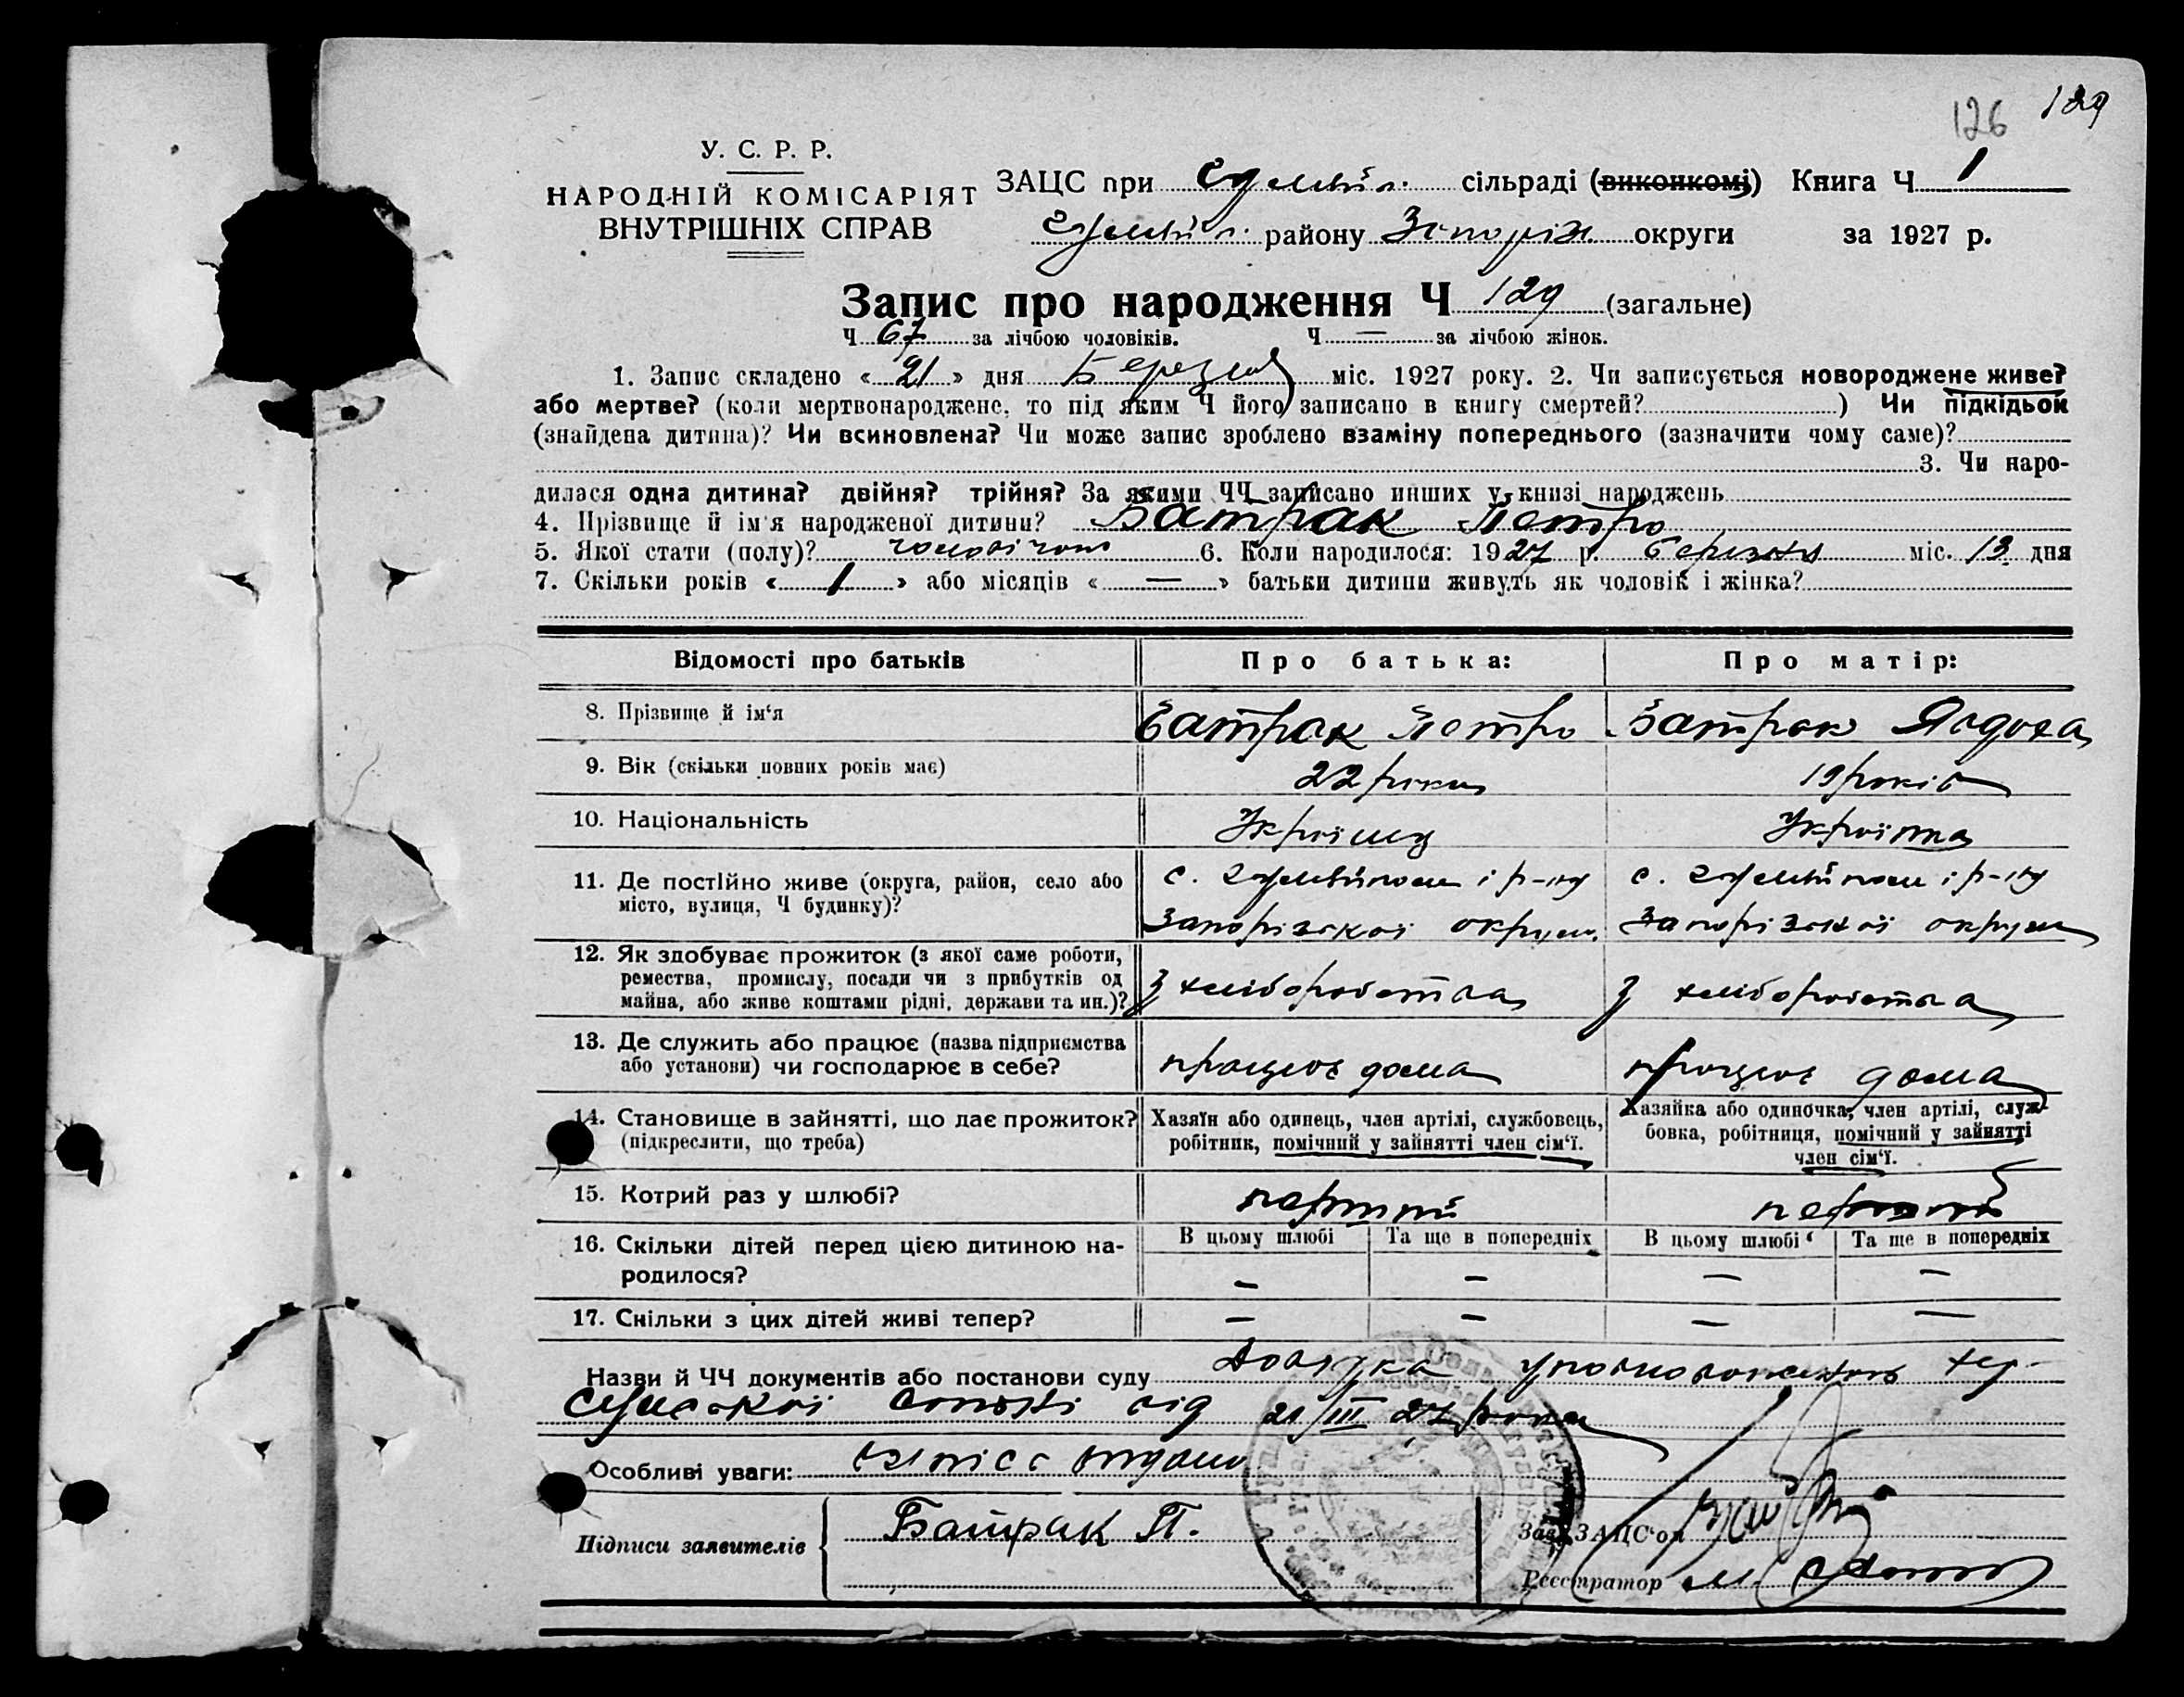 126 129
У. С. Р. Р.
НАРОДНІЙ КОМІСАРІЯТ
ВНУТРІШНІХ СПРАВ
ЗАЦС при сільраді (виконкомі) Книга Ч 1
району Запоріж. округи за 1927 р.
Запис про народження Ч 129 (загальне)
Ч 67 за лічбою чоловіків. Ч — за лічбою жінок.
1. Запис складено « 21 » дня Березня міс. 1927 року. 2. Чи записується новороджене живе?
або мертве? (коли мертвонароджене, то під яким Ч його записано в книгу смертей? ) Чи підкідьок
(знайдена дитина)? Чи всиновлена? Чи може запис зроблено взаміну попереднього (зазначити чому саме)?
3. Чи наро-
дилася одна дитина? двійня? трійня? За якими ЧЧ записано инших у книзі народжень
4. Прізвище й ім'я народженої дитини? Батрак Петро
5. Якої стати (полу)? чоловічої 6. Коли народилося: 1927 р. березня міс. 13 дня
7. Скільки років « 1 » або місяців « — » батьки дитини живуть як чоловік і жінка?
Відомості про батьків Про батька: Про матір:
8. Прізвище й ім'я Батрак Петро Батрак Явдоха
9. Вік (скільки повних років має) 22 роки 19 років
10. Національність Українець Українка
11. Де постійно живе (округа, район, село або с. і р-ну с. і р-ну
місто, вулиця, Ч будинку)? Запорізької округи Запорізької округи
12. Як здобуває прожиток (з якої саме роботи,
ремества, промислу, посади чи з прибутків од
майна, або живе коштами рідні, держави та ин.)? З хліборобства З хліборобства
13. Де служить або працює (назва підприємства
або установи) чи господарює в себе? працює дома працює дома
14. Становище в зайнятті, що дає прожиток? Хазяїн або одинець, член артілі, службовець, Хазяйка або одиночка, член артілі, служ-
(підкреслити, що треба) робітник, помічний у зайнятті член сім'ї. бовка, робітниця, помічний у зайнятті
член сім'ї.
15. Котрий раз у шлюбі? перший перший
16. Скільки дітей перед цією дитиною на- В цьому шлюбі Та ще в попередніх В цьому шлюбі Та ще в попередніх
родилося? — — — —
17. Скільки з цих дітей живі тепер? — — — —
Назви й ЧЧ документів або постанови суду Довідка уповноваженого
від 21/III 27 року
Особливі уваги: видано
Підписи заявителів Батрак П. Зав. ЗАЦС'ом
Реєстратор